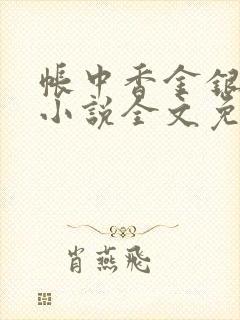 帐中香金银
小说全文免
肖燕飛